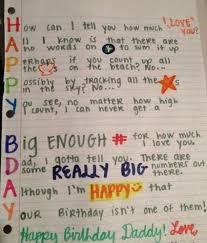 How can I tell you how much I LOVE YOU?
All I know is that there are
no words on to sum it up
Perhaps if you count up all
the on the beach? No...
Possibly by tracking all the s
in the sky? No...
You see, no matter how high
I count, I can never get a
Big ENOUGH # for how much
I love you.
Dad, I gotta tell you. There are
some REALLY BIG numbers out there.
Although I'm HAPPY that
YOUR Birthday isn't one of them!
Happy Birthday Daddy! Love,